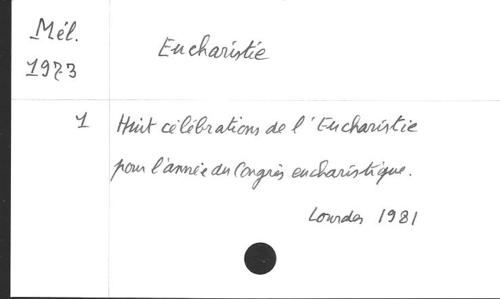 Mél.
1973
Eucharistie
1 Huit célébrations de l'Eucharistie
pour l'année du Congrès eucharistique.
Lourdes 1981